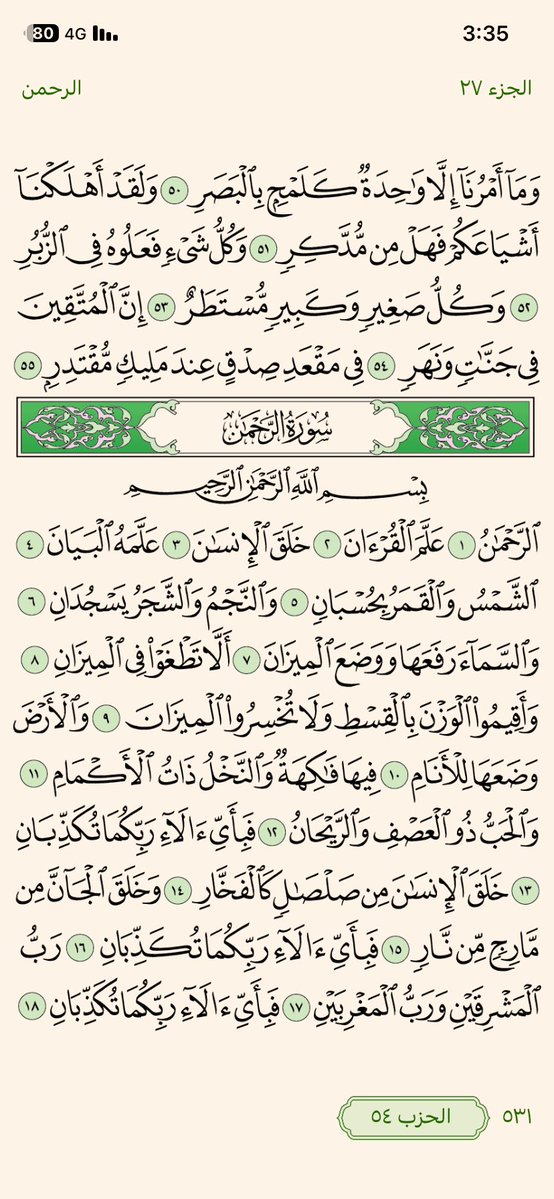 80 4G 3:35
الجزء ٢٧ الرحمن
وَمَآ أَمْرُنَآ إِلَّا وَٰحِدَةٌ كَلَمْحٍۭ بِٱلْبَصَرِ ٥٠ وَلَقَدْ أَهْلَكْنَآ
أَشْيَاعَكُمْ فَهَلْ مِن مُّدَّكِرٍ ٥١ وَكُلُّ شَىْءٍ فَعَلُوهُ فِى ٱلزُّبُرِ
٥٢ وَكُلُّ صَغِيرٍ وَكَبِيرٍ مُّسْتَطَرٌ ٥٣ إِنَّ ٱلْمُتَّقِينَ
فِى جَنَّٰتٍ وَنَهَرٍ ٥٤ فِى مَقْعَدِ صِدْقٍ عِندَ مَلِيكٍ مُّقْتَدِرٍۭ ٥٥
سُورَةُ الرَّحْمَٰن
بِسْمِ ٱللَّهِ ٱلرَّحْمَٰنِ ٱلرَّحِيمِ
ٱلرَّحْمَٰنُ ١ عَلَّمَ ٱلْقُرْءَانَ ٢ خَلَقَ ٱلْإِنسَٰنَ ٣ عَلَّمَهُ ٱلْبَيَانَ ٤
ٱلشَّمْسُ وَٱلْقَمَرُ بِحُسْبَانٍ ٥ وَٱلنَّجْمُ وَٱلشَّجَرُ يَسْجُدَانِ ٦
وَٱلسَّمَآءَ رَفَعَهَا وَوَضَعَ ٱلْمِيزَانَ ٧ أَلَّا تَطْغَوْا۟ فِى ٱلْمِيزَانِ ٨
وَأَقِيمُوا۟ ٱلْوَزْنَ بِٱلْقِسْطِ وَلَا تُخْسِرُوا۟ ٱلْمِيزَانَ ٩ وَٱلْأَرْضَ
وَضَعَهَا لِلْأَنَامِ ١٠ فِيهَا فَٰكِهَةٌ وَٱلنَّخْلُ ذَاتُ ٱلْأَكْمَامِ ١١
وَٱلْحَبُّ ذُو ٱلْعَصْفِ وَٱلرَّيْحَانُ ١٢ فَبِأَىِّ ءَالَآءِ رَبِّكُمَا تُكَذِّبَانِ
١٣ خَلَقَ ٱلْإِنسَٰنَ مِن صَلْصَٰلٍ كَٱلْفَخَّارِ ١٤ وَخَلَقَ ٱلْجَآنَّ مِن
مَّارِجٍ مِّن نَّارٍ ١٥ فَبِأَىِّ ءَالَآءِ رَبِّكُمَا تُكَذِّبَانِ ١٦ رَبُّ
ٱلْمَشْرِقَيْنِ وَرَبُّ ٱلْمَغْرِبَيْنِ ١٧ فَبِأَىِّ ءَالَآءِ رَبِّكُمَا تُكَذِّبَانِ ١٨
٥٣١ الحزب ٥٤